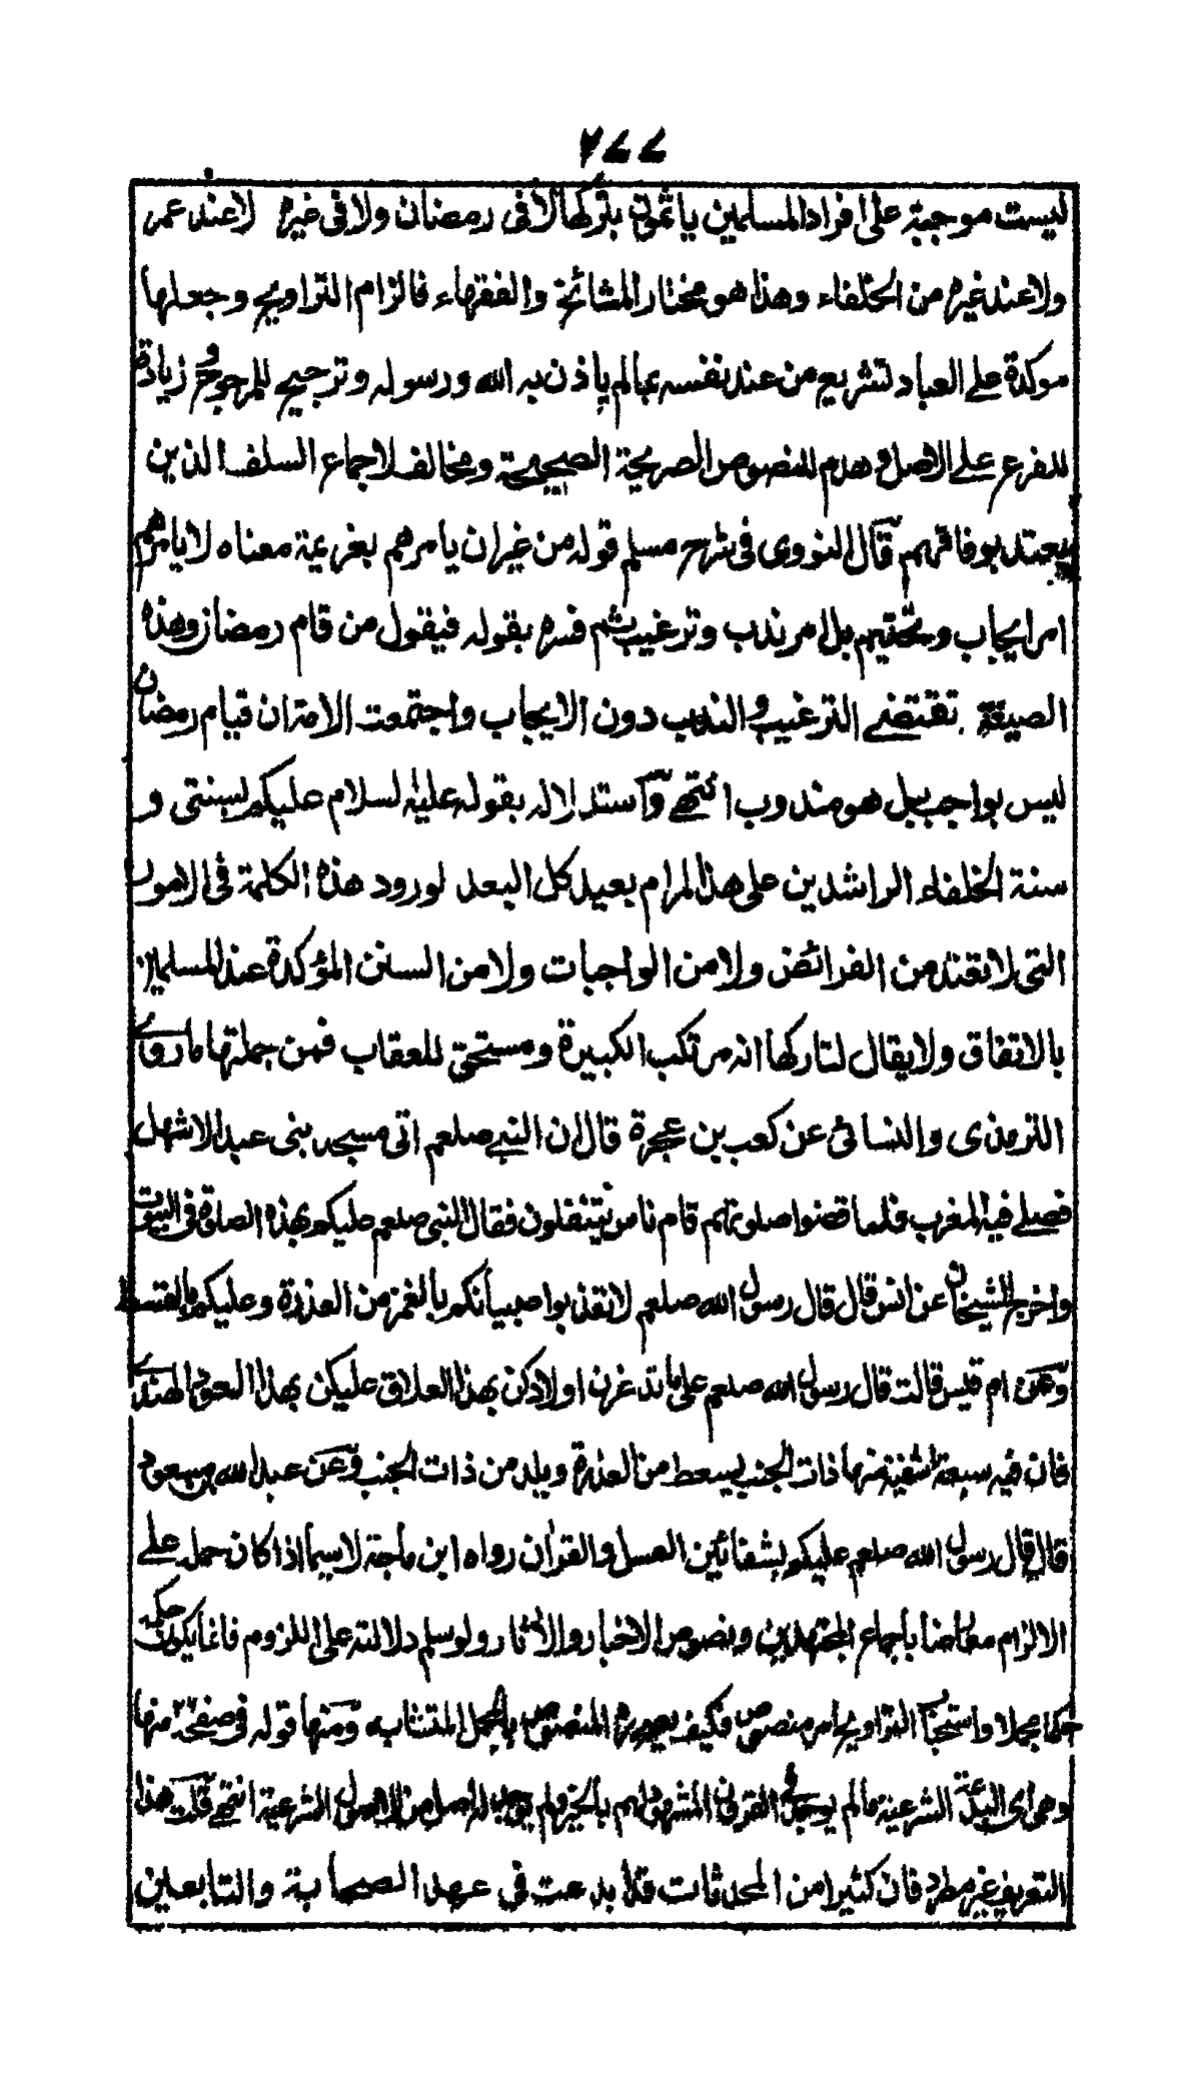 ٢٧٧
ليست موجبة على افراد المسلمين ياثمون بتركها لا فى رمضان ولا فى غيره لا عند عمر
ولا عند غيره من الخلفاء وهذا هو مختار المشائخ والفقهاء فالزام التراويح وجعلها
موكدة على العباد لتشريع من عند نفسه بمالم ياذن به الله ورسوله وترجيح للمرجوح و زيادة
للفرع على الاصل و هدم للنصوص الصريحة الصحيحة ومخالف لاجماع السلف الذين
يعتد بوفاقهم قال النووى فى شرح مسلم قوله من غيران يامرهم بعزيمة معناه لا يامرهم
امر ايجاب وتحتيم بل امر ندب وترغيب ثم فسره بقوله فيقول من قام رمضان وهذه
الصيغة تقتضے الترغيب والندب دون الايجاب واجتمعت الامة ان قيام رمضان
ليس بواجب بل هو مندوب انتهے وآستدلاله بقوله عليه السلام عليكم بسنتى و
سنة الخلفاء الراشدين على هذا المرام بعيد كل البعد لورود هذه الكلمة فى الامور
التى لا تعد من الفرائض ولا من الواجبات ولا من السنن المؤكدة عند المسلمين
بالاتفاق ولا يقال لتاركها انه مرتكب الكبيرة ومستحق للعقاب فمن جملتها ما رواه
الترمذى والنسائى عن كعب بن عجرة قال ان النبے صلعم اتى مسجد بنى عبد الاشهل
فصلے فيه المغرب فلما قضوا صلوتهم قام ناس يتنفلون فقال النبى صلعم عليكم بهذه الصلوة فى البيوت
واخرج الشيخان عن انس قال قال رسول الله صلعم لا تعذبوا صبيانكم بالغمز من العذرة وعليكم بالقسط
وعن ام قيس قالت قال رسول الله صلعم على ما تدغرن اولادكن بهذا العلاق عليكن بهذا العود الهندے
فان فيه سبعة اشفية منها ذات الجنب يسعط من العذرة ويلد من ذات الجنب وعن عبد الله بن مسعود
قال قال رسول الله صلعم عليكم بشفائين العسل والقران رواه ابن ماجة لاسيما اذا كان حمله علے
الالزام معارضا باجماع المجتهدين ونصوص الاخبار والاثار ولو سلم دلالته على اللزوم فانما يكون حكمه
حكما مجملا واستحباب التراويح امر منصوص فكيف يعارض المنصوص بالمجمل المتشابه ومنها قوله فى صفحة منها
وهى اى البدعة الشرعية مالم يوجد فى القرون المشهود لهم بالخير ولم يوجد له اصل من الاصول الشرعية انتهے قلت هذا
التعريف غير مطرد فان كثيرا من المحدثات قد ابدعت فى عهد الصحابة والتابعين